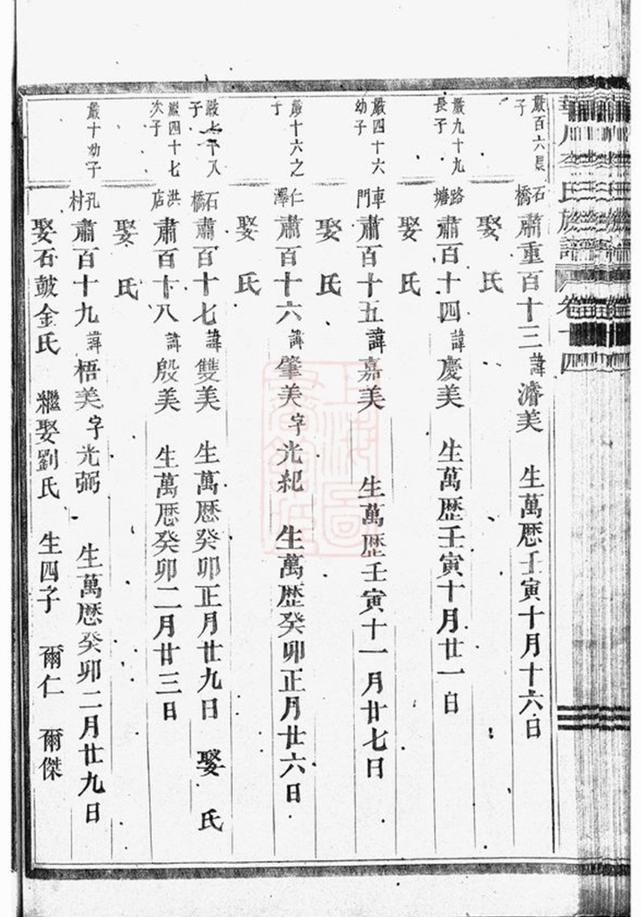 氏族譜 卷十四
嚴百六長子
石橋 肅重百十三諱濟美 生萬歷壬寅十月十六日
娶 氏
嚴九十九長子
路塘 肅百十四諱慶美 生萬歷壬寅十月廿一日
娶 氏
嚴四十六幼子
車門 肅百十五諱嘉美 生萬歷壬寅十一月廿七日
娶 氏
嚴十六之子
仁澤 肅百十六諱肇美字光紀 生萬歷癸卯正月廿六日
娶 氏
嚴七十八子
石橋 肅百十七諱雙美 生萬歷癸卯正月廿九日 娶 氏
嚴四十七次子
洪店 肅百十八諱殷美 生萬歷癸卯二月廿三日
娶 氏
嚴十幼子
孔村 肅百十九諱梧美字光弼 生萬歷癸卯二月廿九日
娶石鼓金氏 繼娶劉氏 生四子 爾仁 爾傑